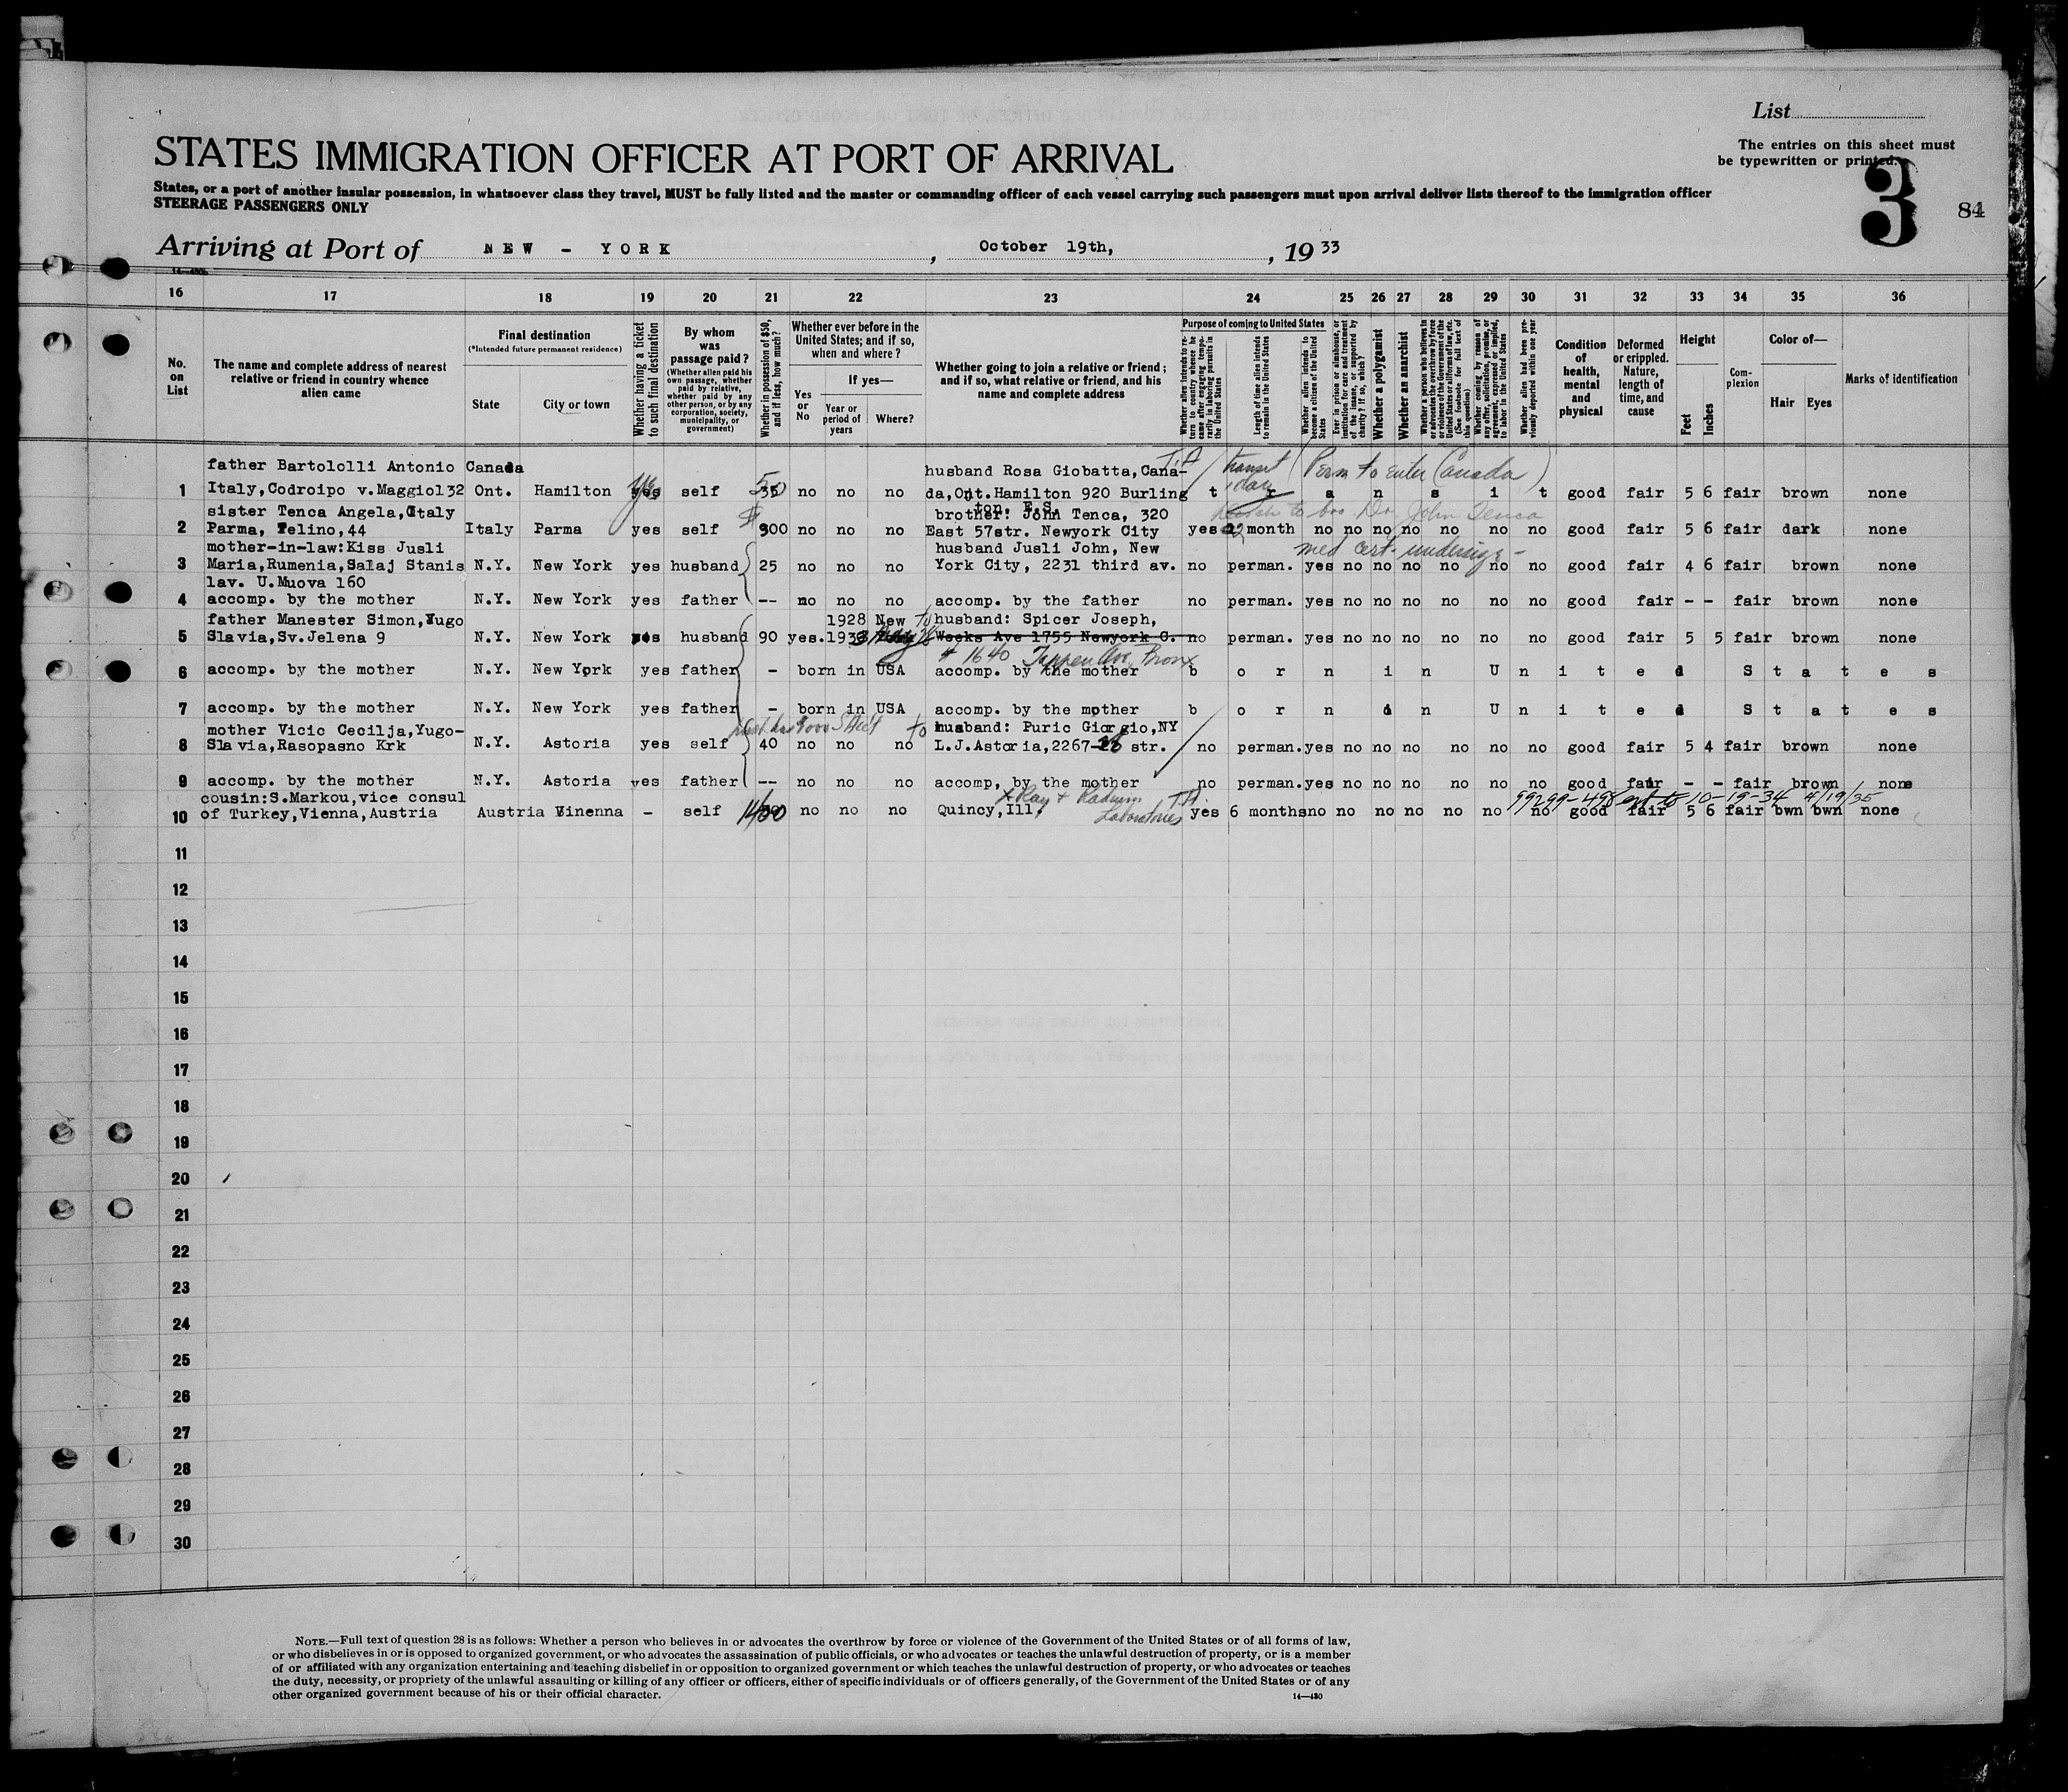 List
The entries on this sheet must
be typewritten or printed.
STATES IMMIGRATION OFFICER AT PORT OF ARRIVAL
3
84
States, or a port of another insular possession, in whatsoever class they travel, MUST be fully listed and the master or commanding officer of each vessel carrying such passengers must upon arrival deliver lists thereof to the immigration officer
STEERAGE PASSENGERS ONLY
Arriving at Port of NEW - YORK, October 19th, 1933
16 17 18 19 20 21 22 23 24 25 26 27 28 29 30 31 32 33 34 35 36
No. on List
The name and complete address of nearest relative or friend in country whence alien came
Final destination
(*Intended future permanent residence)
State
City or town
Whether having a ticket to such final destination
By whom was passage paid?
(Whether alien paid his own passage, whether paid by relative, whether paid by any other person, or by any corporation, society, municipality, or government)
Whether in possession of $50, and if less, how much?
Whether ever before in the United States; and if so, when and where?
Yes or No
If yes—
Year or period of years
Where?
Whether going to join a relative or friend; and if so, what relative or friend, and his name and complete address
Purpose of coming to United States
Whether alien intends to return to country whence he came after engaging temporarily in laboring pursuits in the United States
Length of time alien intends to remain in the United States
Whether alien intends to become a citizen of the United States
Ever in prison or almshouse, or institution for care and treatment of the insane, or supported by charity? If so, which?
Whether a polygamist
Whether an anarchist
Whether a person who believes in or advocates the overthrow by force or violence of the Government of the United States or all forms of law, etc. (See footnote for full text of this question)
Whether coming by reason of any offer, solicitation, promise, or agreement, expressed or implied, to labor in the United States
Whether alien had been previously deported within one year
Condition of health, mental and physical
Deformed or crippled. Nature, length of time, and cause
Height
Feet
Inches
Complexion
Color of—
Hair
Eyes
Marks of identification
father Bartololli Antonio Canada husband Rosa Giobatta,Cana- transit (Perm to enter Canada)
1 Italy,Codroipo v.Maggiol32 Ont. Hamilton yes self 50 no no no da,Ont.Hamilton 920 Burling t r a n s i t good fair 5 6 fair brown none
ton. E.S.
sister Tenca Angela,Italy brother: John Tenca, 320 to bro Dr. John Tenca
2 Parma, Felino,44 Italy Parma yes self $ 900 no no no East 57str. Newyork City yes 2 month no no no no no no no good fair 5 6 fair dark none
mother-in-law:Kiss Jusli husband Jusli John, New med cert. undersize -
3 Maria,Rumenia,Salaj Stanis N.Y. New York yes husband 25 no no no York City, 2231 third av. no perman. yes no no no no no no good fair 4 6 fair brown none
lav. U.Muova 160
4 accomp. by the mother N.Y. New York yes father -- no no no accomp. by the father no perman. yes no no no no no no good fair - - fair brown none
father Manester Simon,Yugo 1928 New husband: Spicer Joseph,
5 Slavia,Sv.Jelena 9 N.Y. New York yes husband 90 yes.1933 Weeks Ave 1755 Newyork C. no perman. yes no no no no no no good fair 5 5 fair brown none
# 1640 Ave. Bronx
6 accomp. by the mother N.Y. New York yes father - born in USA accomp. by the mother b o r n i n U n i t e d S t a t e s
7 accomp. by the mother N.Y. New York yes father - born in USA accomp. by the mother b o r n i n U n i t e d S t a t e s
mother Vicic Cecilja,Yugo- to husband: Puric Giorgio,NY
8 Slavia,Rasopasno Krk N.Y. Astoria yes self 40 no no no L.J.Astoria,2267-26 str. no perman.yes no no no no no no good fair 5 4 fair brown none
9 accomp. by the mother N.Y. Astoria yes father -- no no no accomp, by the mother no perman.yes no no no no no no good fair - - fair brown none
cousin:S.Markou,vice consul X Ray + Radium Laboratories 99299-498 ext to 10-19-34 4/19/35
10 of Turkey,Vienna,Austria Austria Vinenna - self no no no Quincy,Ill. yes 6 months no no no no no no no good fair 5 6 fair bwn bwn none
11
12
13
14
15
16
17
18
19
20
21
22
23
24
25
26
27
28
29
30
NOTE.—Full text of question 28 is as follows: Whether a person who believes in or advocates the overthrow by force or violence of the Government of the United States or of all forms of law,
or who disbelieves in or is opposed to organized government, or who advocates the assassination of public officials, or who advocates or teaches the unlawful destruction of property, or is a member
of or affiliated with any organization entertaining and teaching disbelief in or opposition to organized government or which teaches the unlawful destruction of property, or who advocates or teaches
the duty, necessity, or propriety of the unlawful assaulting or killing of any officer or officers, either of specific individuals or of officers generally, of the Government of the United States or of any
other organized government because of his or their official character.
14—430